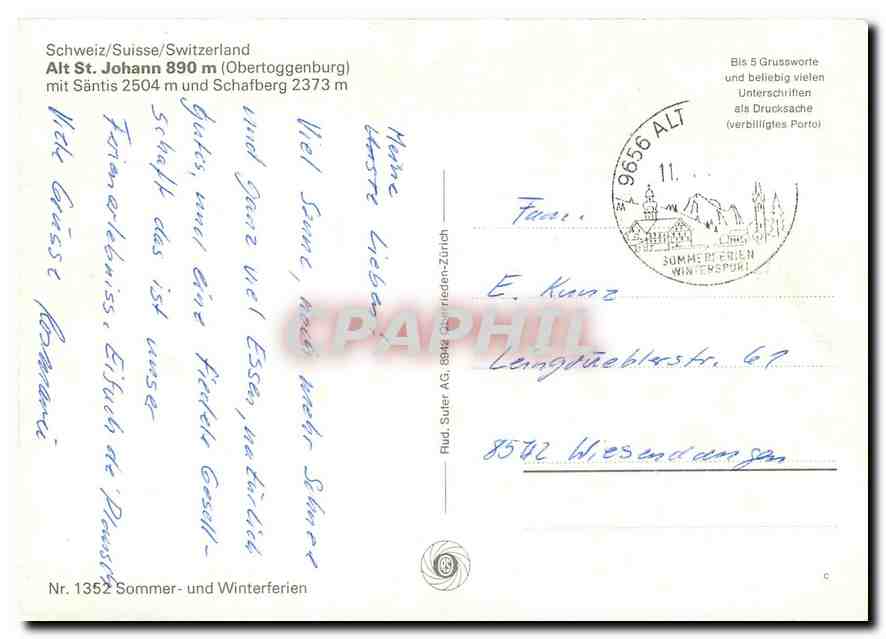 Schweiz/Suisse/Switzerland
Alt St. Johann 890 m (Obertoggenburg)
mit Säntis 2504 m und Schafberg 2373 m
Bis 5 Grussworte
und beliebig vielen
Unterschriften
als Drucksache
(verbilligtes Porto)
9656 ALT
11.
SOMMERFERIEN
WINTERSPORT
Meine
Lieben!
Viel Sonne, noch mehr Schnee
und ganz viel Essen, natürlich
Gutes, und eine fidele Gesell-
schaft das ist unser
Ferienerlebniss. Eifach de Plausch
Viele Grüsse Rosmarie
Fam.
E. Kunz
61
8542 Wiesendangen
Rud. Suter AG, 8942 Oberrieden-Zürich
CPAPHIL
RS
Nr. 1352 Sommer- und Winterferien
c